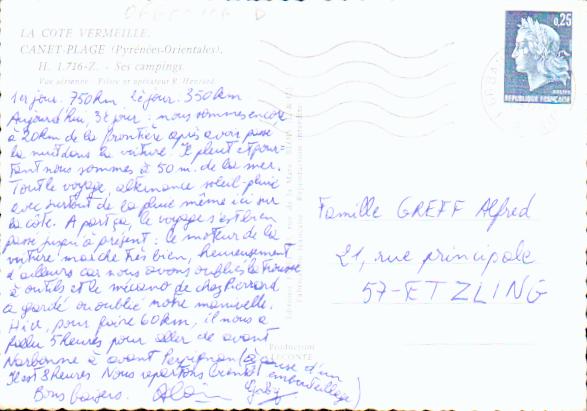 LA COTE VERMEILLE.
CANET-PLAGE (Pyrénées-Orientales).
H. 1.716-Z. - Ses campings.
Vue aérienne - Pilote et opérateur R. Henrard.
1er jour : 750 km, 2è jour : 350 km
Aujourd'hui, 3è jour : nous sommes encore
à 20 km de la frontière après avoir passé
la nuit dans la voiture. Il pleut et pour
tant nous sommes à 50 m. de la mer.
Tout le voyage, alternance soleil pluie
avec surtout de la pluie même ici sur
la côte. A part ça, le voyage s'est bien
passé jusqu'à présent : le moteur de la
voiture marche très bien, heureusement
d'ailleurs car nous avons oublié la trousse
à outils et le mécano de chez Pierrard
a gardé ou oublié notre manivelle.
Hier, pour faire 60 km, il nous a
fallu 5 heures pour aller de avant
Narbonne à avant Perpignan (à cause d'un
embouteillage)
Il est 8 heures. Nous repartons bientôt
Bons baisers.
Famille GREFF Alfred
21, rue principale
57-ETZLING
0,25
POSTES
REPUBLIQUE FRANÇAISE